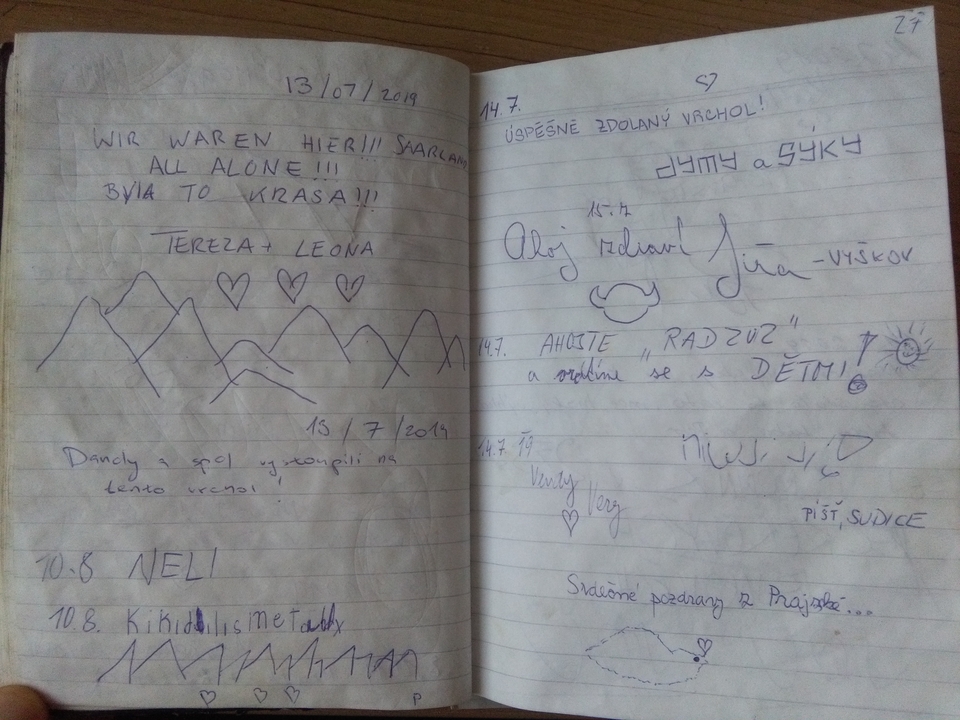 13/07/2019
WIR WAREN HIER!!! SAARLAND
ALL ALONE!!!
BYLA TO KRASA!!!
TEREZA + LEONA
13/7/2019
Dandy a spol vystoupili na
tento vrchol!
10.8 NELI
10.8.
P
27
14.7.
ÚSPĚŠNĚ ZDOLANÝ VRCHOL!
DYMY a SÝKY
15.7
Ahoj zdraví Jíra - VYŠKOV
14.7. AHOJTE "RADZUZ"
a se s DĚTMI!
14.7. 19
Vendy
Very
PÍŠŤ, SUDICE
Srdečné pozdravy z Prajzské...